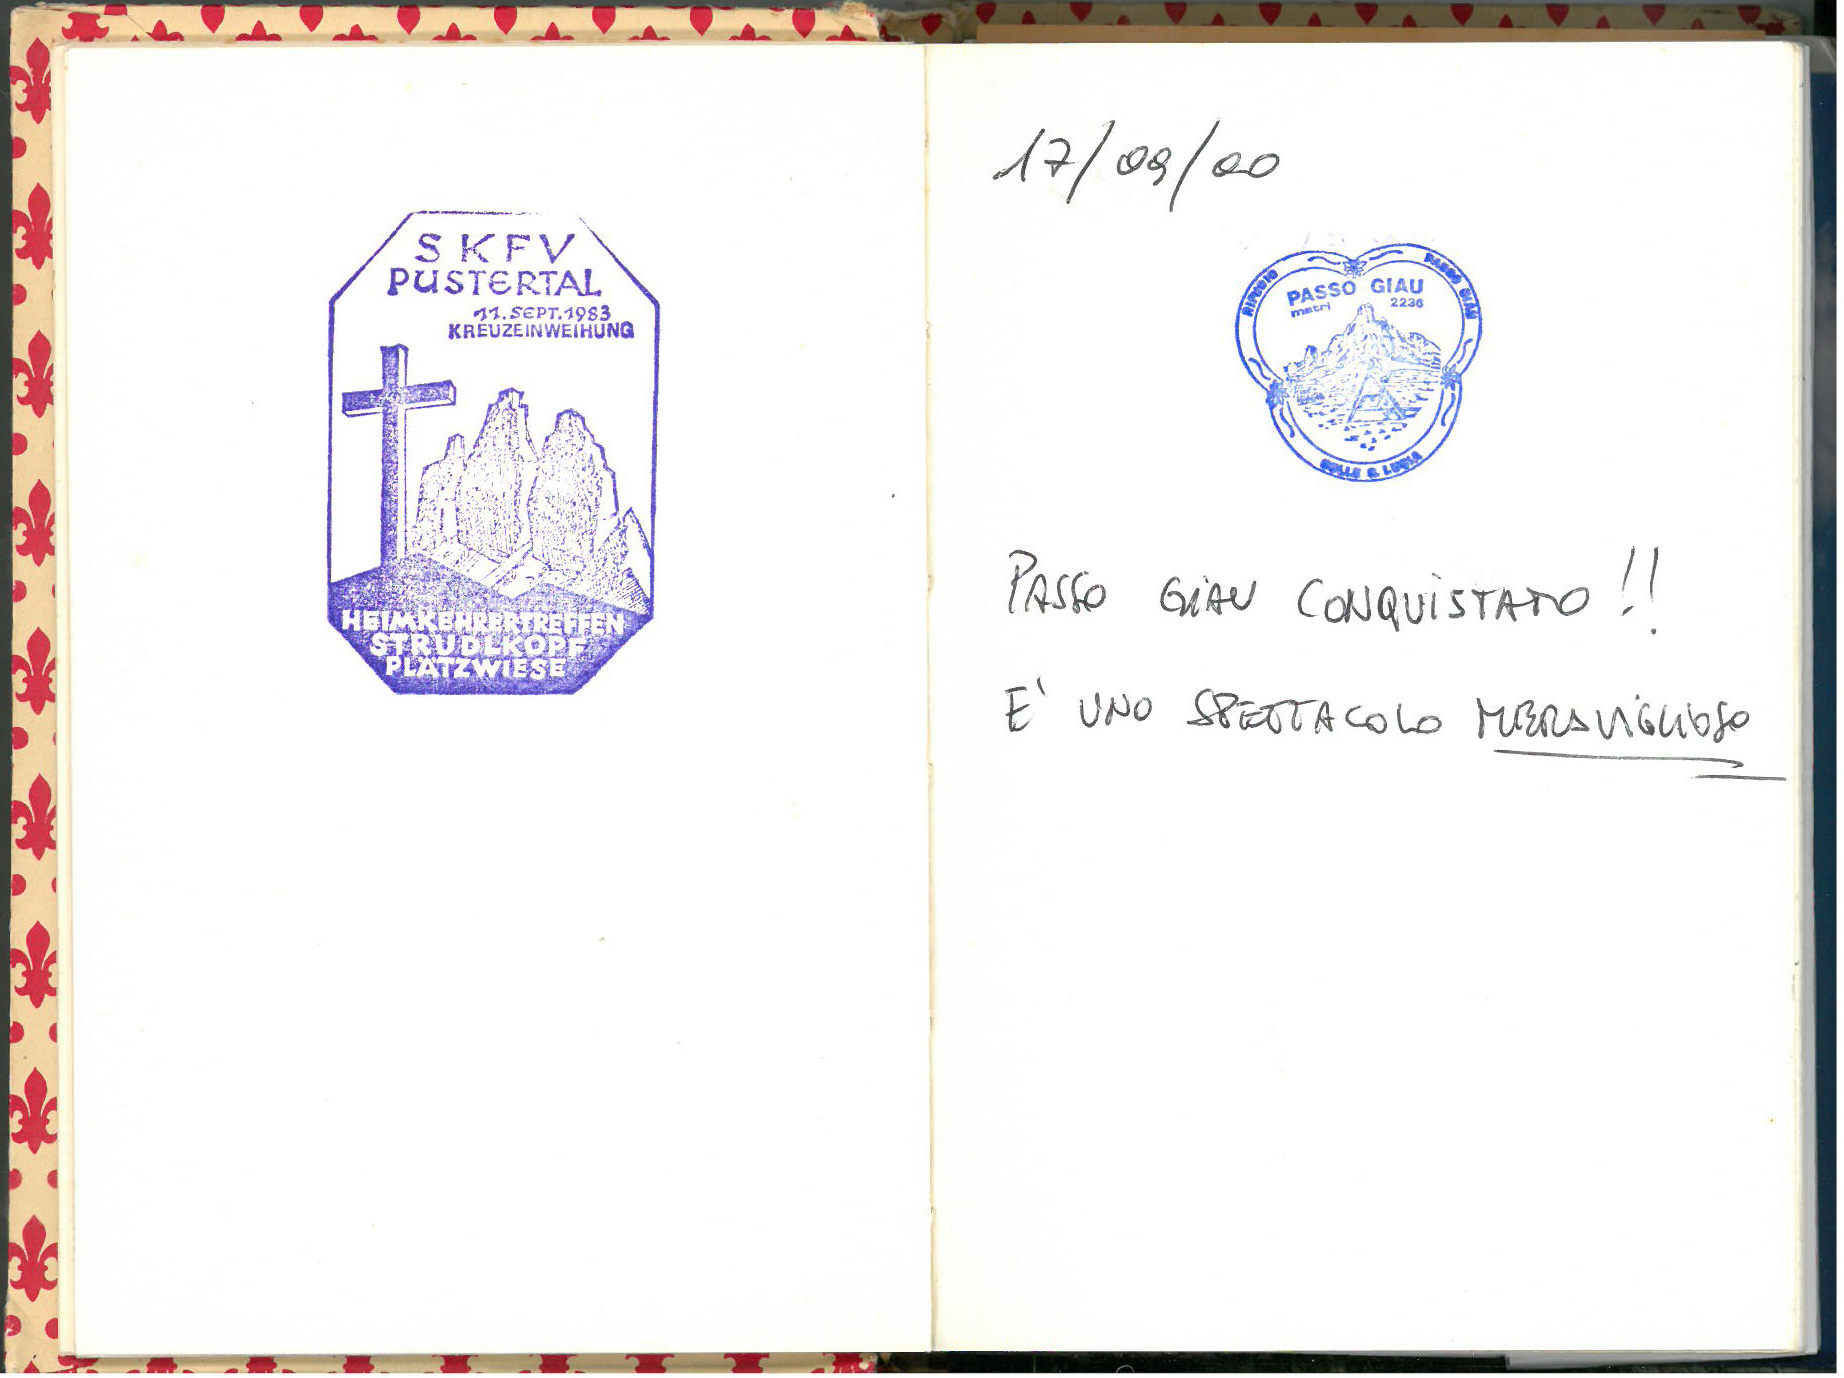 SKFV
PUSTERTAL
11. SEPT. 1983
KREUZEINWEIHUNG
HEIMKEHRERTREFFEN
STRUDLKOPF
PLÄTZWIESE
17/09/00
RIFUGIO PASSO GIAU
PASSO GIAU
metri 2236
COLLE S. LUCIA
PASSO GIAU CONQUISTATO!!
E' UNO SPETTACOLO MERAVIGLIOSO